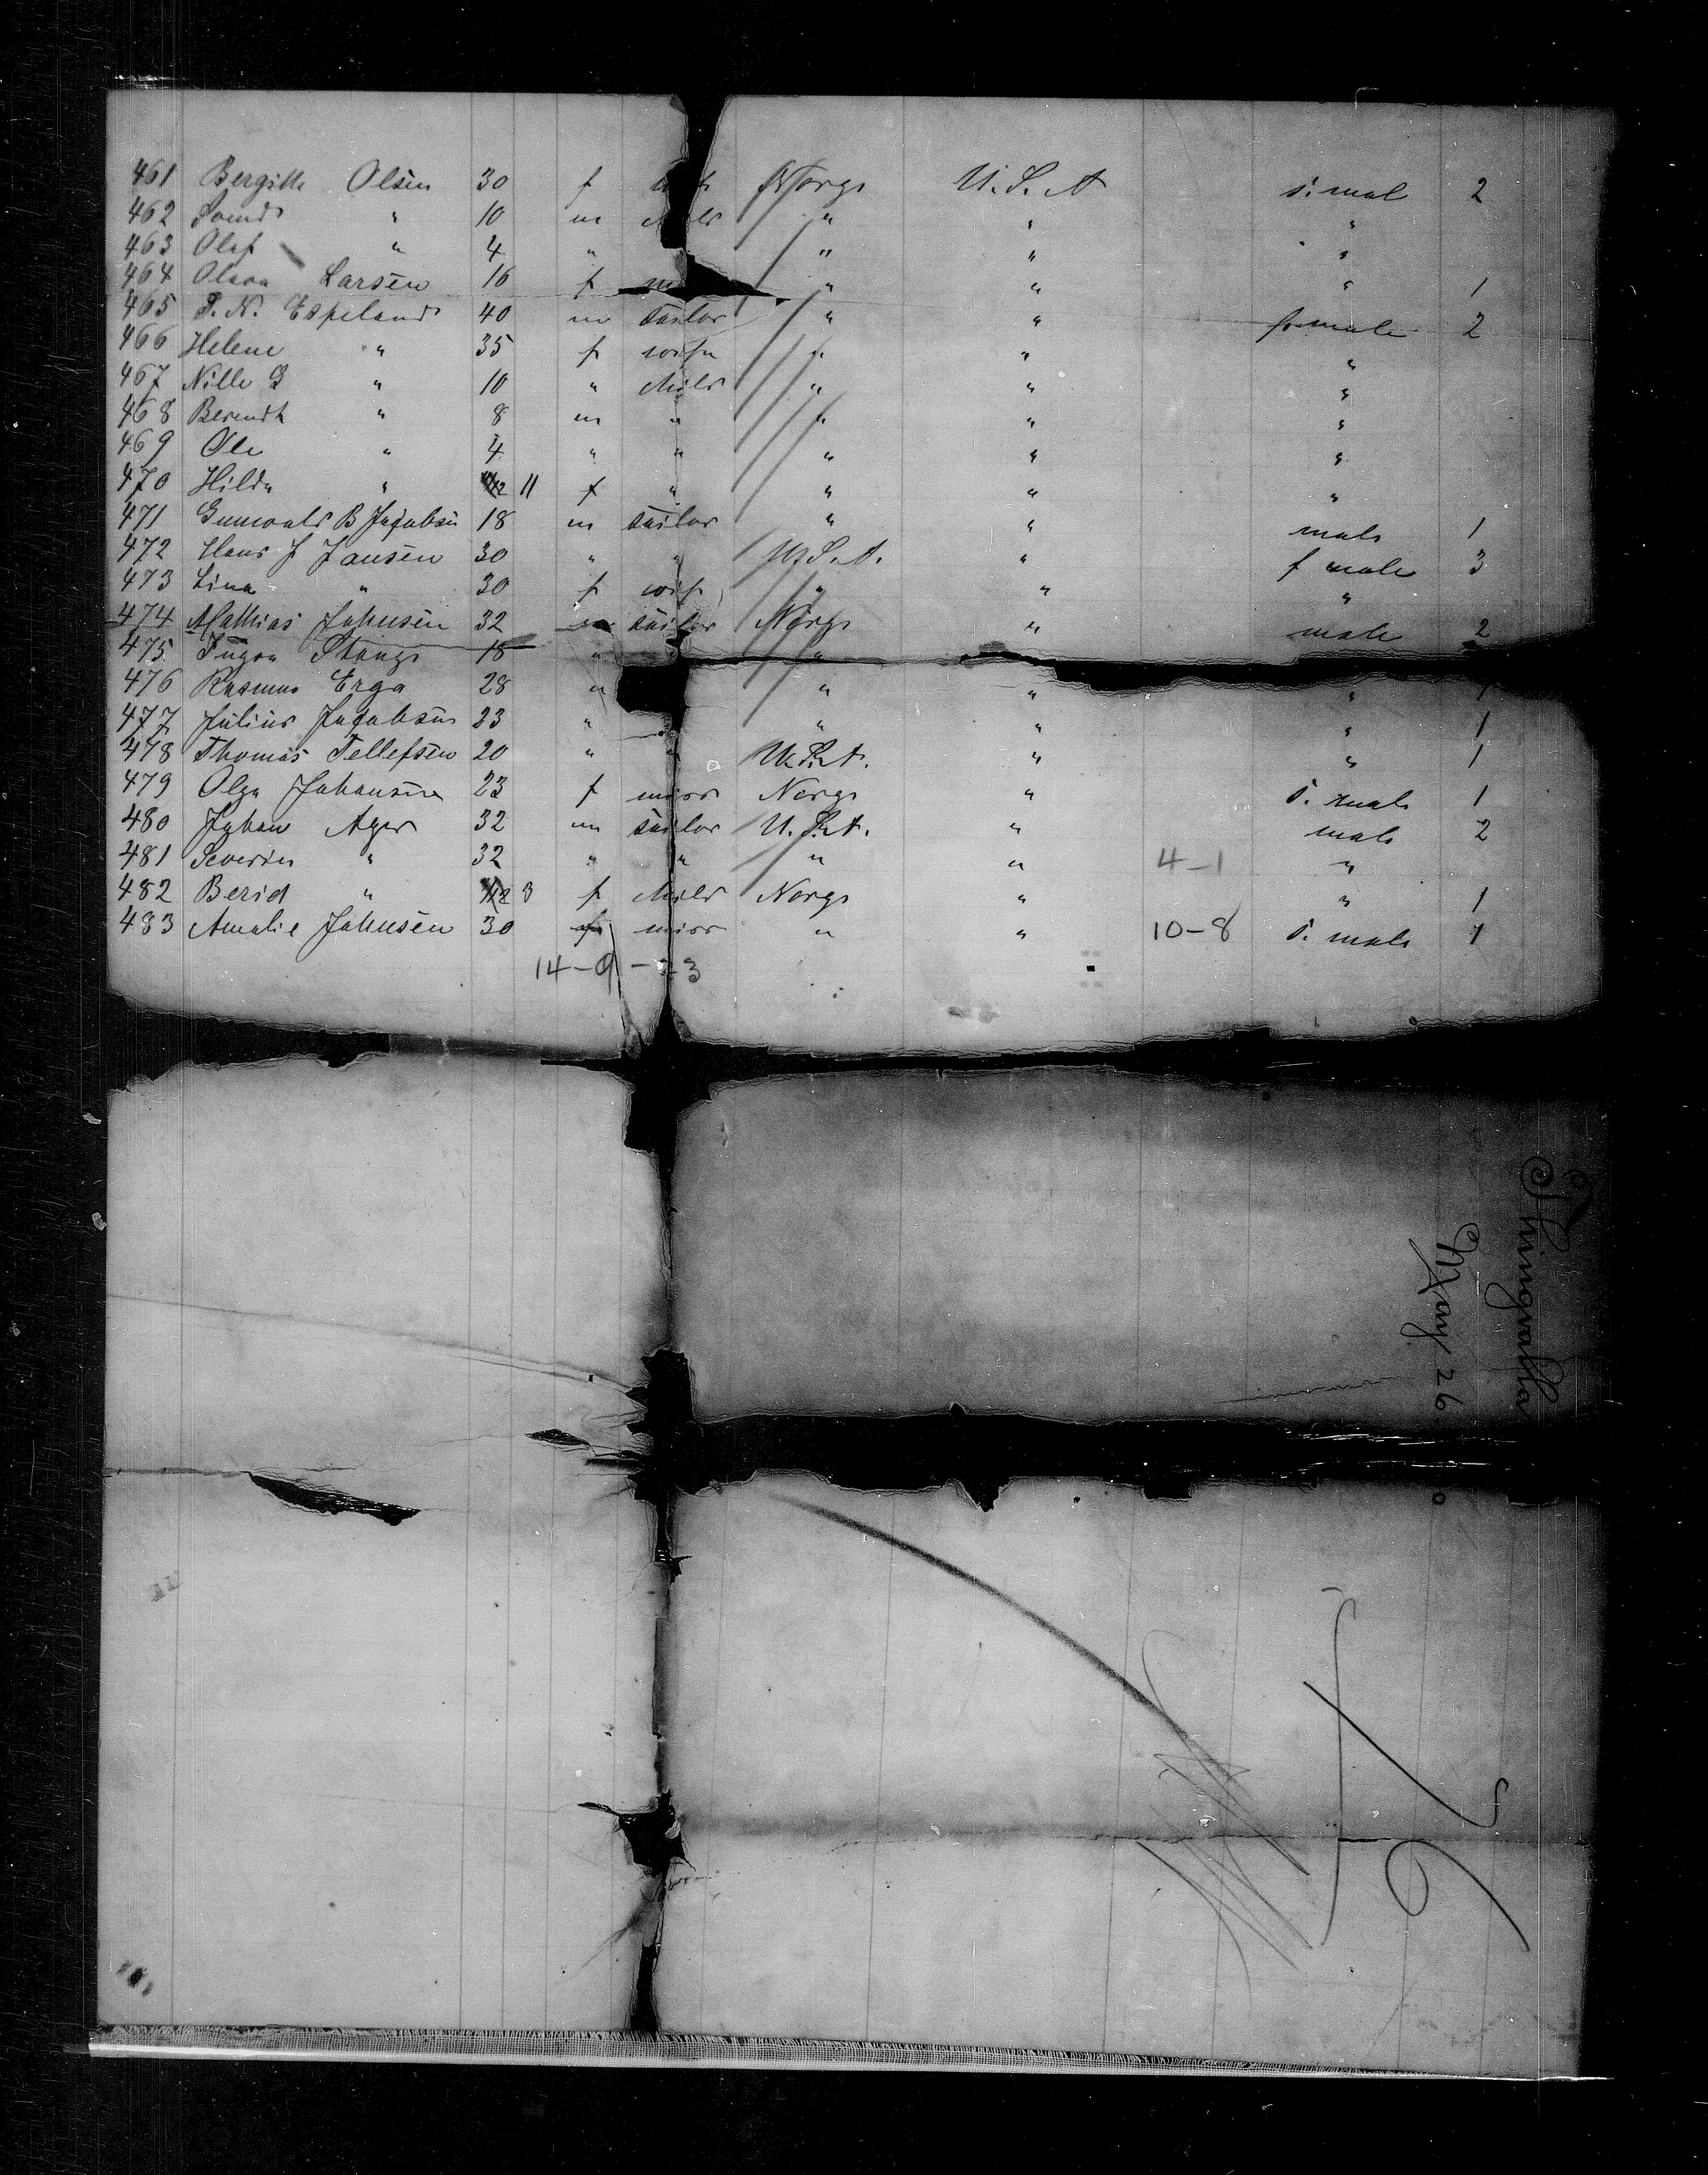 461 Bergitte Olsen 30 f Norge U.S.A s. mal 2
462 " 10 m " " "
463 Olaf " 4 " " " "
464 Larsen 16 f " " " 1
465 Espeland 40 m sailor " " f male 2
466 Helene " 35 f wife " " "
467 Nille G " 10 " child " " "
468 Berendt " 8 m " " " "
469 Ole " 4 " " " " "
470 Hilda " 11 f " " " "
471 Gunvald B Jacobsen 18 m sailor " " male 1
472 Hans J Jansen 30 " " U.S.A. " f male 3
473 Lina " 30 f wife " " "
474 Mathias Johnsen 32 m sailor Norge " male 2
475 Stange 18 " "
476 Rasmus Erga 28 " " " " 1
477 Julius Jacobsen 23 " " " " 1
478 Thomas Tellefsen 20 " " U.S.A. " " 1
479 Olga Johansen 23 f miss Norge " s. male 1
480 Johan Ager 32 m sailor U.S.A. " male 2
481 Severin " 32 " " " " 4-1 "
482 Berid " 3 f child Norge " " 1
483 Amalie Johnsen 30 f miss " " 10-8 s. male 1
14-9-
Thingvalla
May 26